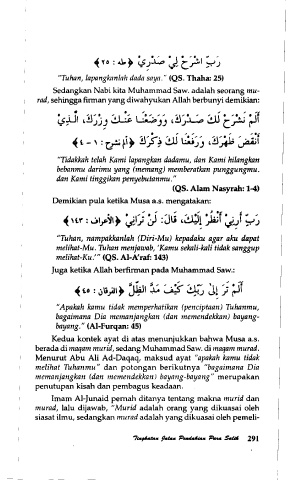 رَبِّ اشْرَحْ لِيْ صَدْرِيْ ﴿طه : ٢٥﴾
"Tuhan, lapangkanlah dada saya." (QS. Thaha: 25)
Sedangkan Nabi kita Muhammad Saw. adalah seorang mu-
rad, sehingga firman yang diwahyukan Allah berbunyi demikian:
أَلَمْ نَشْرَحْ لَكَ صَدْرَكَ، وَوَضَعْنَا عَنْكَ وِزْرَكَ، الَّذِيْ
أَنْقَضَ ظَهْرَكَ، وَرَفَعْنَا لَكَ ذِكْرَكَ ﴿ألم نشرح : ١ - ٤﴾
"Tidakkah telah Kami lapangkan dadamu, dan Kami hilangkan
bebanmu darimu yang (memang) memberatkan punggungmu.
dan Kami tinggikan penyebutanmu."
(QS. Alam Nasyrah: 1-4)
Demikian pula ketika Musa a.s. mengatakan:
رَبِّ أَرِنِيْ أَنْظُرْ إِلَيْكَ، قَالَ: لَنْ تَرَانِيْ ﴿الأعراف : ١٤٣﴾
"Tuhan, nampakkanlah (Diri-Mu) kepadaku agar aku dapat
melihat-Mu. Tuhan menjawab, 'Kamu sekali-kali tidak sanggup
melihat-Ku.'" (QS. Al-A'raf: 143)
Juga ketika Allah berfirman pada Muhammad Saw.:
أَلَمْ تَرَ إِلَى رَبِّكَ كَيْفَ مَدَّ الظِّلَّ ﴿الفرقان : ٤٥﴾
"Apakah kamu tidak memperhatikan (penciptaan) Tuhanmu,
bagaimana Dia memanjangkan (dan memendekkan) bayang-
bayang." (Al-Furqan: 45)
Kedua kontek ayat di atas menunjukkan bahwa Musa a.s.
berada di maqam murid, sedang Muhammad Saw. di maqam murad.
Menurut Abu Ali Ad-Daqaq, maksud ayat "apakah kamu tidak
melihat Tuhanmu" dan potongan berikutnya "bagaimana Dia
memanjangkan (dan memendekkan) bayang-bayang" merupakan
penutupan kisah dan pembagus keadaan.
Imam Al-Junaid pernah ditanya tentang makna murid dan
murad, lalu dijawab, "Murid adalah orang yang dikuasai oleh
siasat ilmu, sedangkan murad adalah yang dikuasai oleh pemeli-
Tingkatan Jalan Pendakian Para Salik 291